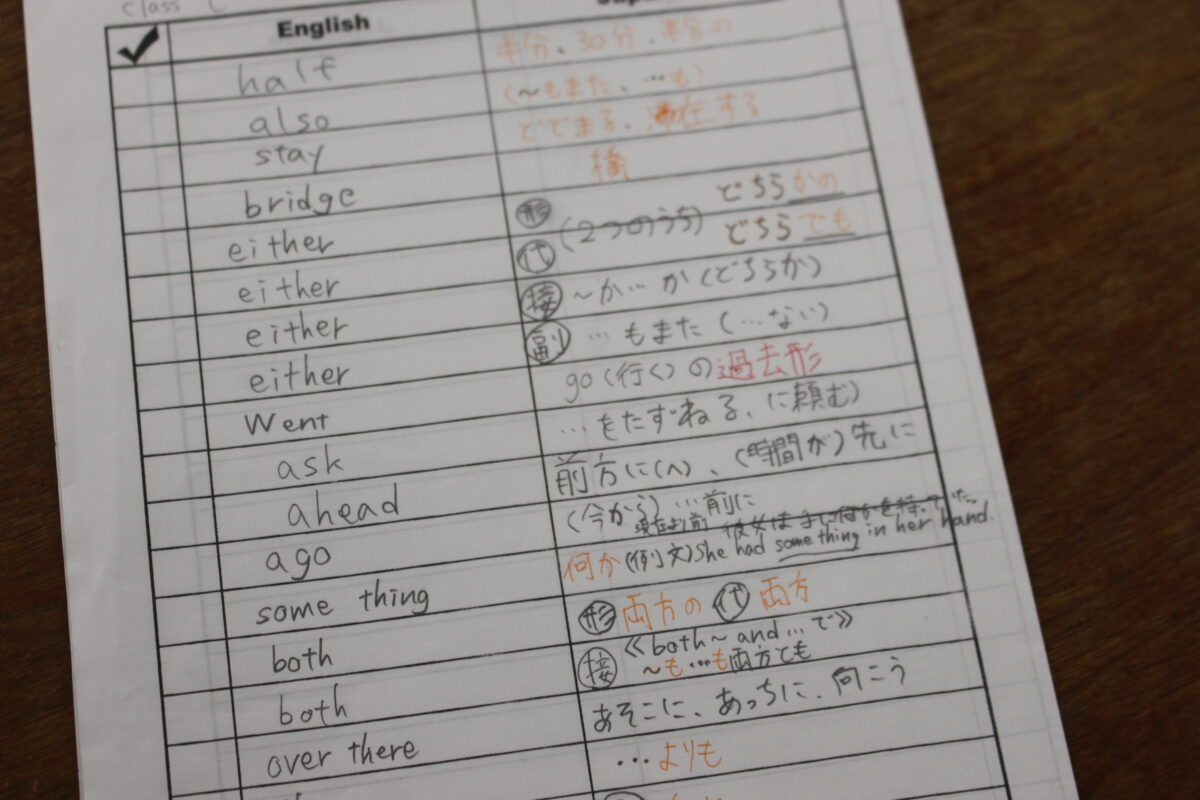 class C
English
half 半分、30分、半分の
also (〜もまた、…も)
stay とどまる、滞在する
bridge 橋
either 形 (2つのうち) どちらかの
either 代 どちらでも
either 接 〜か…か(どちらか)
either 副 …もまた(…ない)
Went go(行く)の過去形
ask …をたずねる、に頼む)
ahead 前方に(へ)、(時間が)先に
ago (今から)…前に
現在より前 彼女は手に何かを持っていた
some thing 何か(例文)She had some thing in her hand.
both 形 両方の 代 両方
both 接 《both〜and…で》
〜も…も両方とも
over there あそこに、あっちに、向こう
…よりも